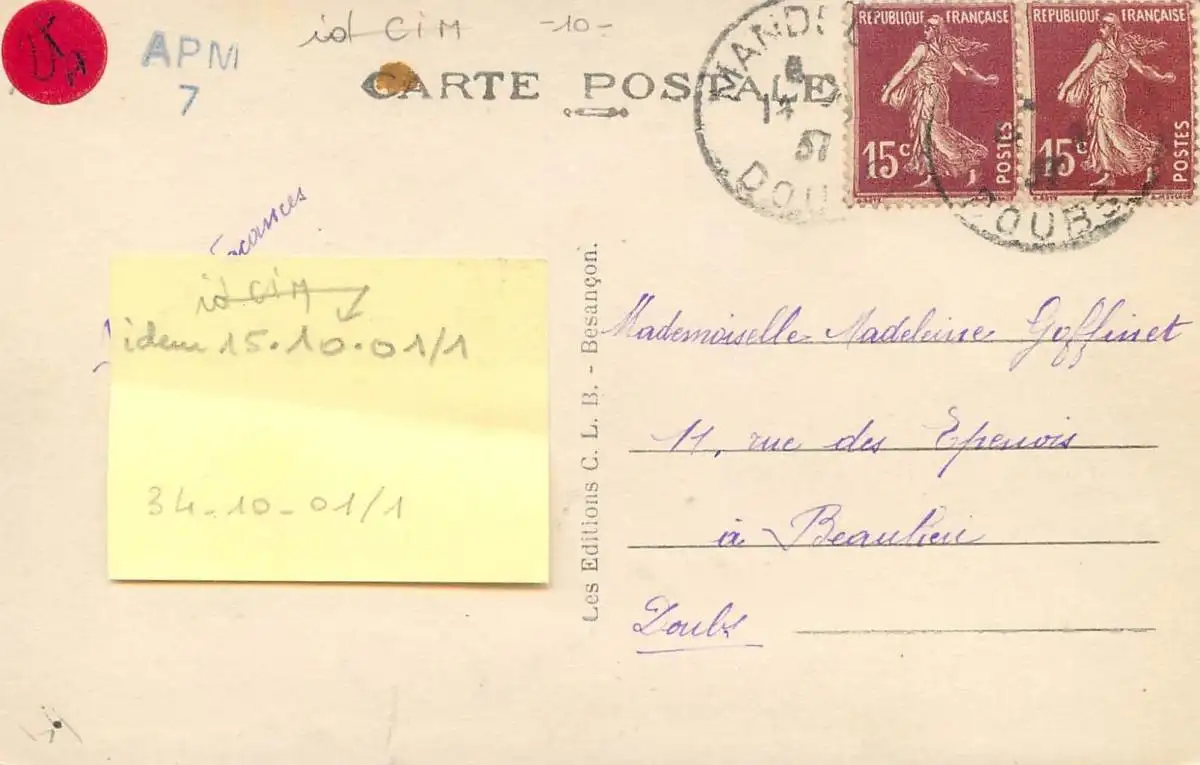 id CIM -10-
APM
7
CARTE POSTALE
RÉPUBLIQUE FRANÇAISE
15c
POSTES
RÉPUBLIQUE FRANÇAISE
15c
POSTES
DOUBS
id CIM
idem 15.10.01/1
34-10-01/1
Les Editions C. L. B. - Besançon.
Mademoiselle Madeleine Goffinet
11, rue des Epenois
à Beaulieu
Doubs